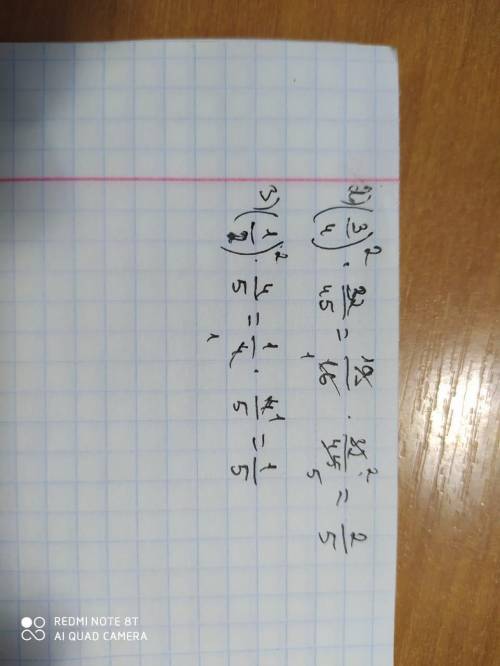 2) (3/4)² · 32/45 = 9/16 · 32/45 = 2/5
3) (1/2)² · 4/5 = 1/4 · 4/5 = 1/5
REDMI NOTE 8T
AI QUAD CAMERA